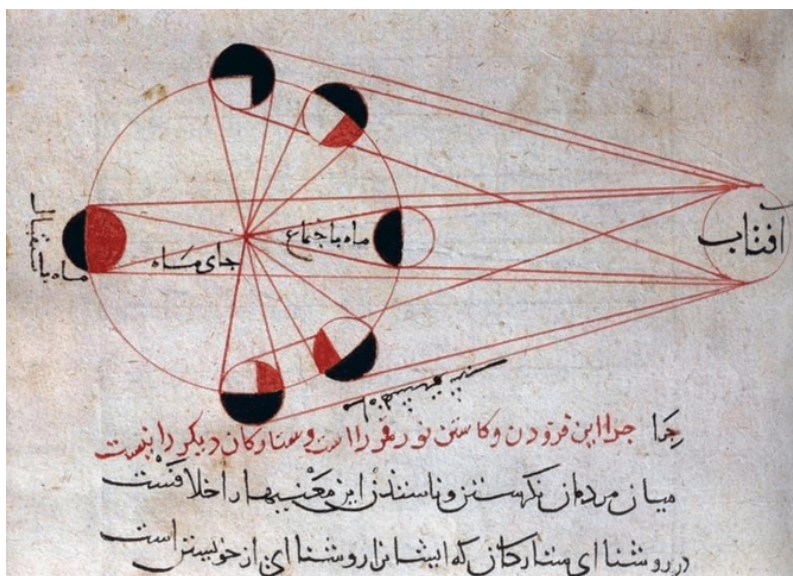 افتاب
ماه باجتماع
جای ماه
ماه باستقبال
چرا چرا این فزودن و کاستن نور قمر را است و ستارکان دیکر را نیست
میان مردمان نکرستن این معنیها را خلافست
در روشنا ای ستارکان که ایشانرا روشنا ای از خویشتن است